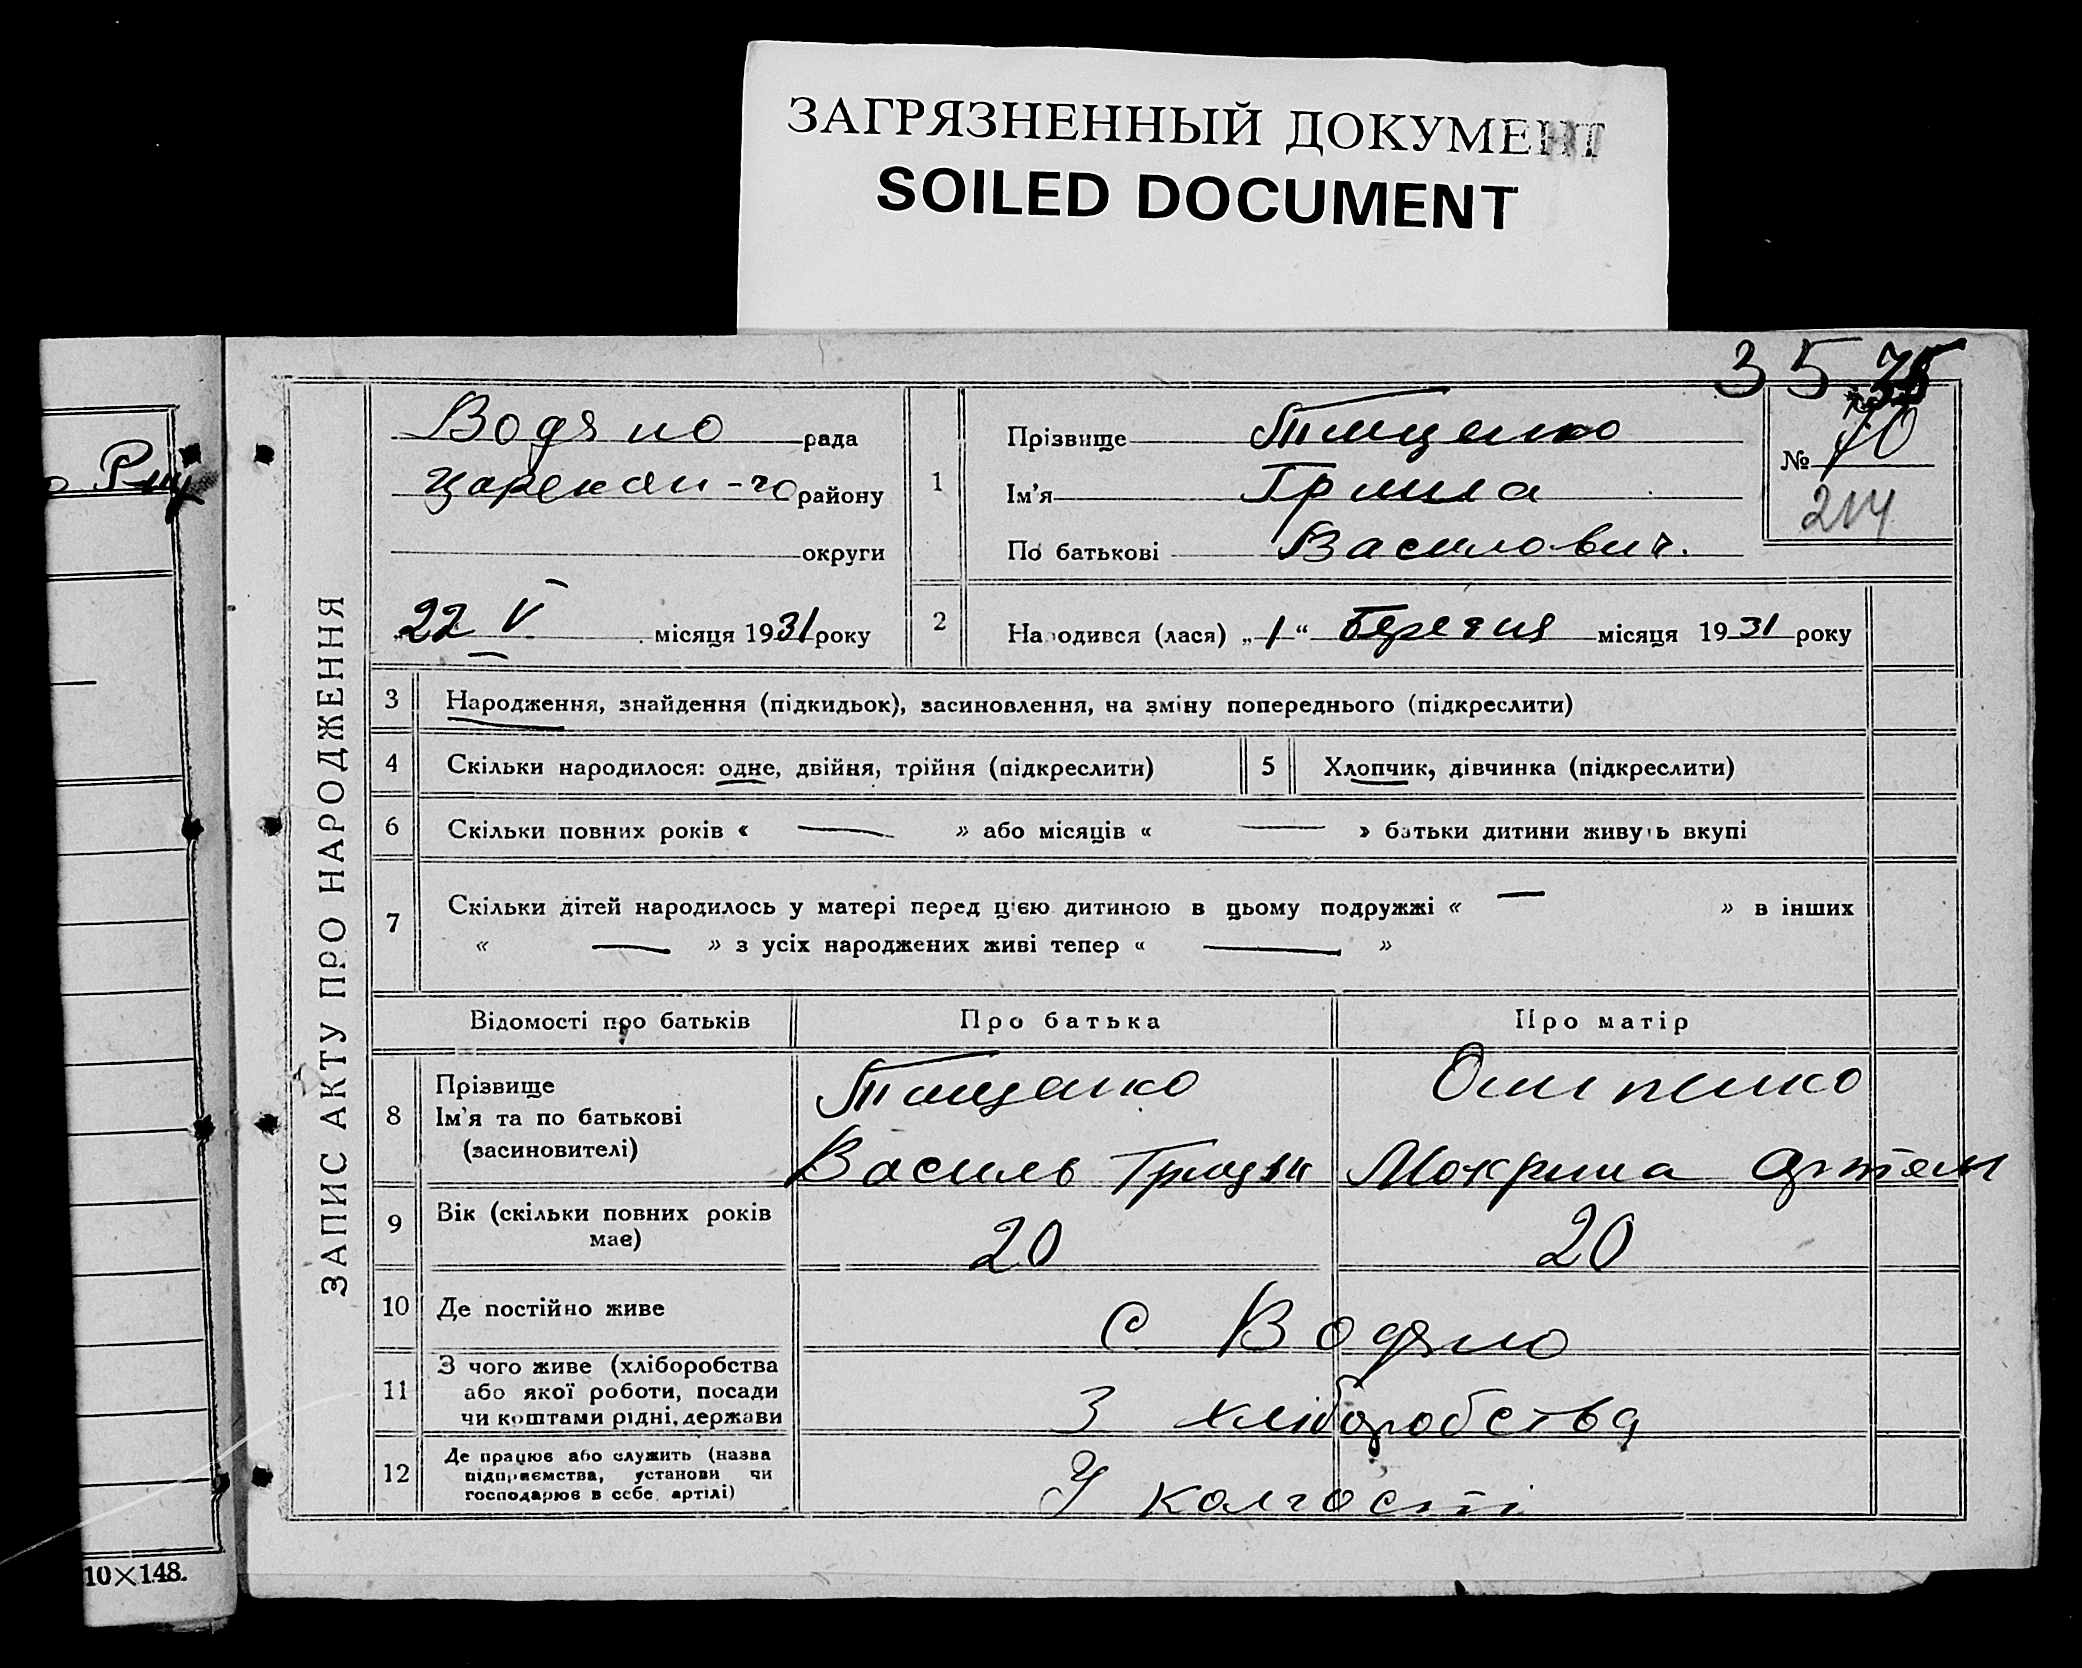 ЗАГРЯЗНЕННЫЙ ДОКУМЕНТ
SOILED DOCUMENT
35
ЗАПИС АКТУ ПРО НАРОДЖЕННЯ
Водяно рада
Царекан-го району
округи
22 V місяця 1931 року
1
Прізвище Тищенко
Ім'я
По батькові Василович.
№ 70
214
2 Народився (лася) „1“ Березня місяця 1931 року
3 Народження, знайдення (підкидьок), засиновлення, на зміну попереднього (підкреслити)
4 Скільки народилося: одне, двійня, трійня (підкреслити)
5 Хлопчик, дівчинка (підкреслити)
6 Скільки повних років « — » або місяців « — » батьки дитини живуть вкупі
7 Скільки дітей народилось у матері перед цією дитиною в цьому подружжі « — » в інших
« — » з усіх народжених живі тепер « — »
Відомості про батьків Про батька Про матір
8 Прізвище
Ім'я та по батькові
(засиновителі)
Тищенко
Василь Гриць
Осипенко
Мокрина
9 Вік (скільки повних років
має)
20 20
10 Де постійно живе
с Водяно
11 З чого живе (хліборобства
або якої роботи, посади
чи коштами рідні, держави
З хліборобства
12 Де працює або служить (назва
підприємства, установи чи
господарює в себе артілі)
У колгоспі
10×148.